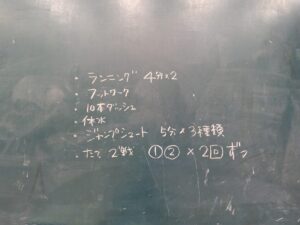 ・ランニング 4分×2
・フットワーク
・10本ダッシュ
・休水
・ジャンプシュート 5分×3種類
・たて 2戦 ①② ×2回ずつ